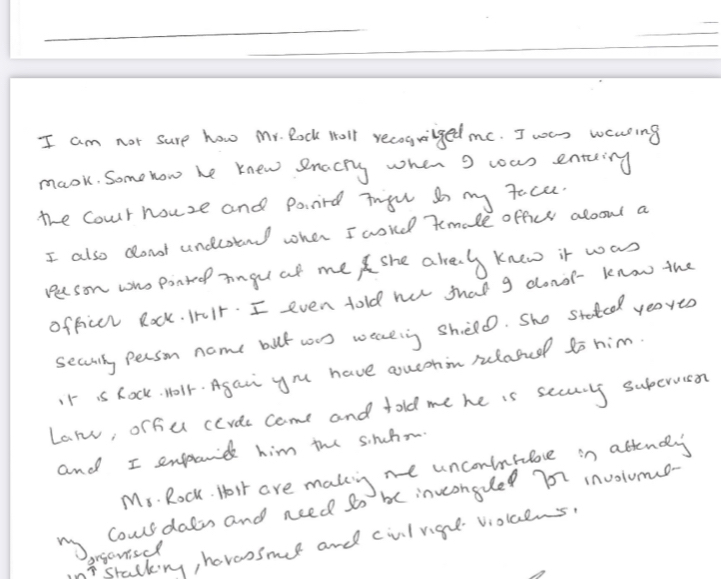 I am not sure how Mr. Rock Holt recognized me. I was wearing
mask. Somehow he knew exactly when I was entering
the Court house and Pointed finger to my face.
I also donot understand when I asked Female officer about a
Person who pointed finger at me & she already knew it was
officer Rock. Holt. I even told her that I donot know the
security Person name but was wearing Shield. She stated yes yes
it is Rock. Holt. Again you have question related to him.
Later, officer came and told me he is security supervisor
and I him the
Mr. Rock. Holt are making me uncomfortable in attending
my Court dates and need to be investigated for
organised
in ↑ Stalking, harassment and civil right violations.